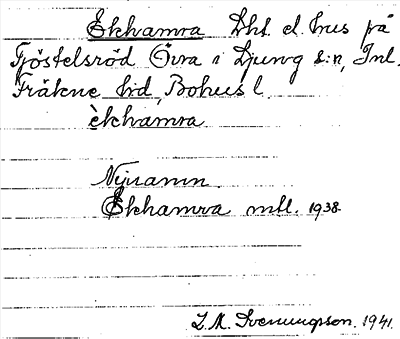 Ekhamra Lht el. hus på
Fjöstelsröd Övra i Ljung s:n, Inl.
Fräkne hd, Bohusl.
èkhamra
Nynamn.
Ekhamra mtl. 1938.
S. M. Svenungsson. 1941.